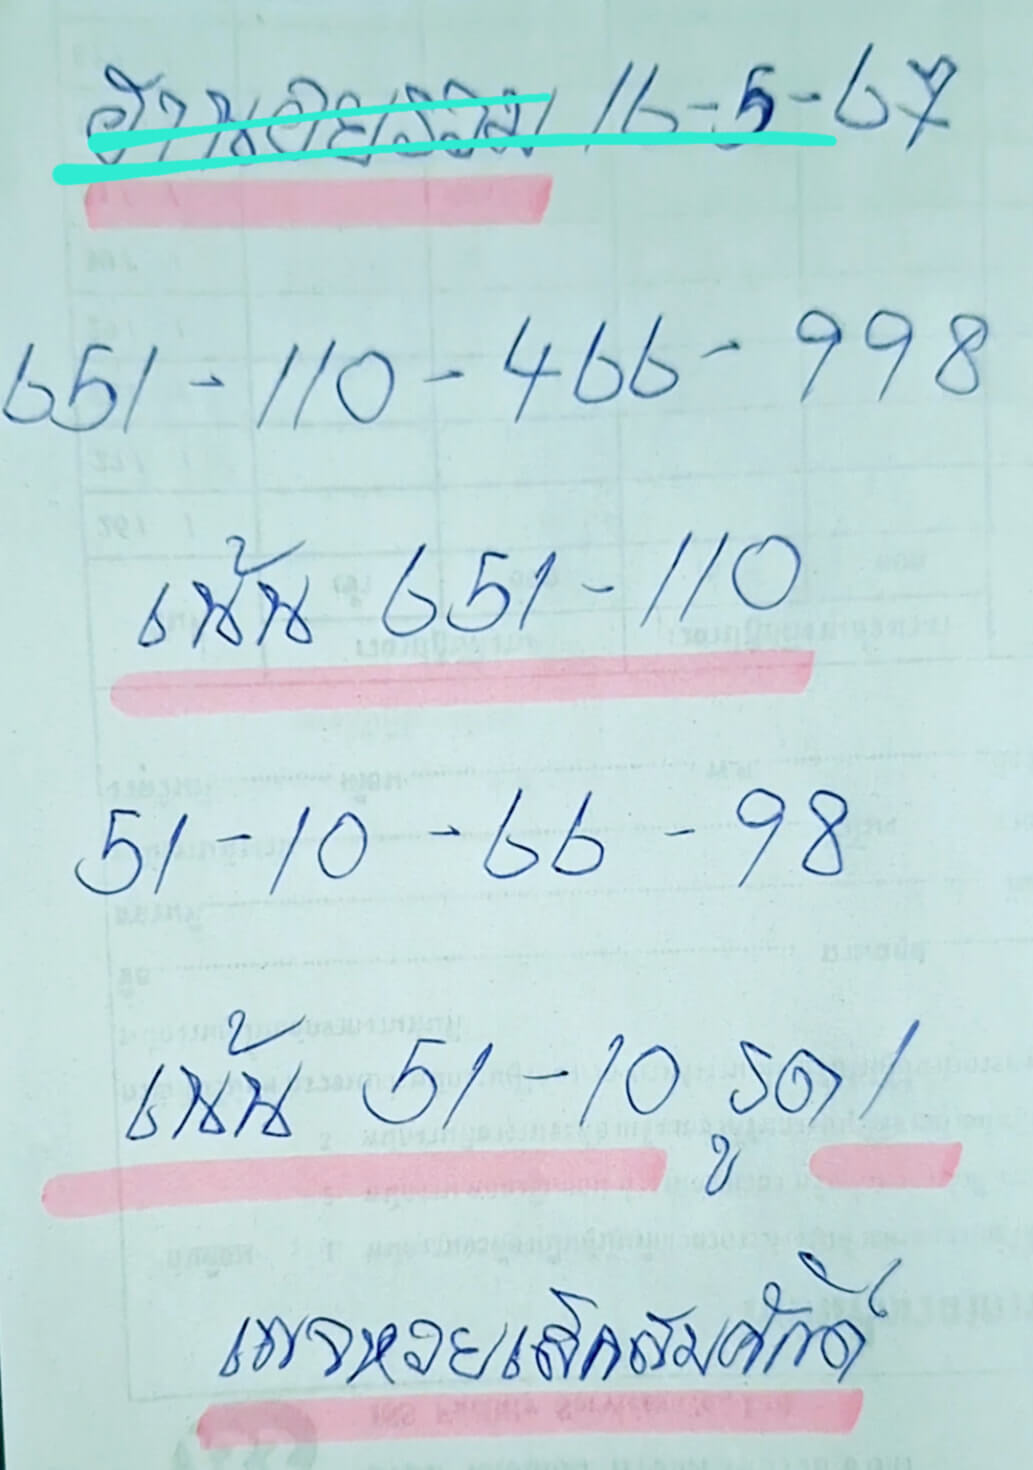 16-5-67
651-110-466-998
เน้น 651-110
51-10-66-98
เน้น 51-10 รูด 1
เพจหวยเล็กสมศักดิ์